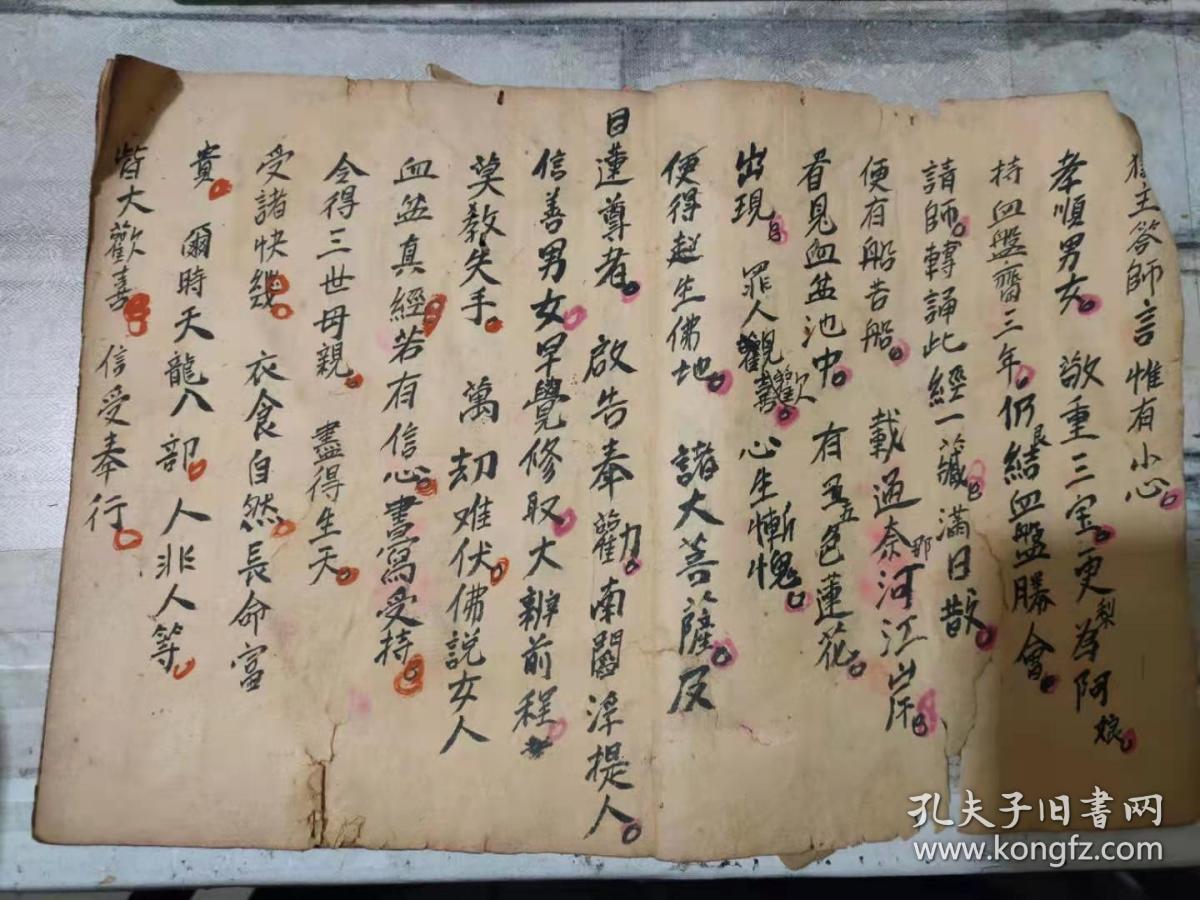 獄主答師言惟有小心
孝順男女。敬重三宝。更為阿娘
持血盤齋三年。仍結血盤勝會。
請師。轉誦此經一藏滿日散。
便有船苦船。載過奈河江岸
看見血盆池中。有五色蓮花。
出現。罪人觀歡喜。心生慚愧。
便得超生佛地。諸大菩薩。及
目蓮尊者。啟告奉勸南閻浮提人。
信善男女。早覺修取大辦前程
莫教失手。萬劫难伏。佛説女人
血盆真經。若有信心。書寫受持。
令得三世母親。盡得生天。
受諸快樂。衣食自然。長命富
貴。爾時天龍八部。人非人等。
皆大歡喜。信受奉行。
孔夫子旧书网
www.kongfz.com